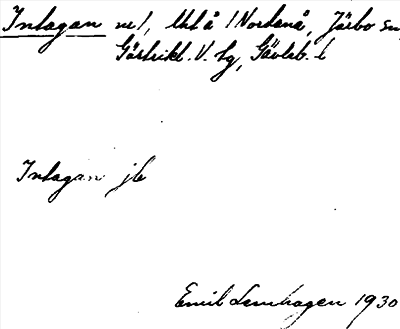 Intagan nr 1, Utl å i Nordanå, Järbo sn,
Gästrikl. V. tg, Gävleb. l
Intagan jb
Emil Lenhagen 1930